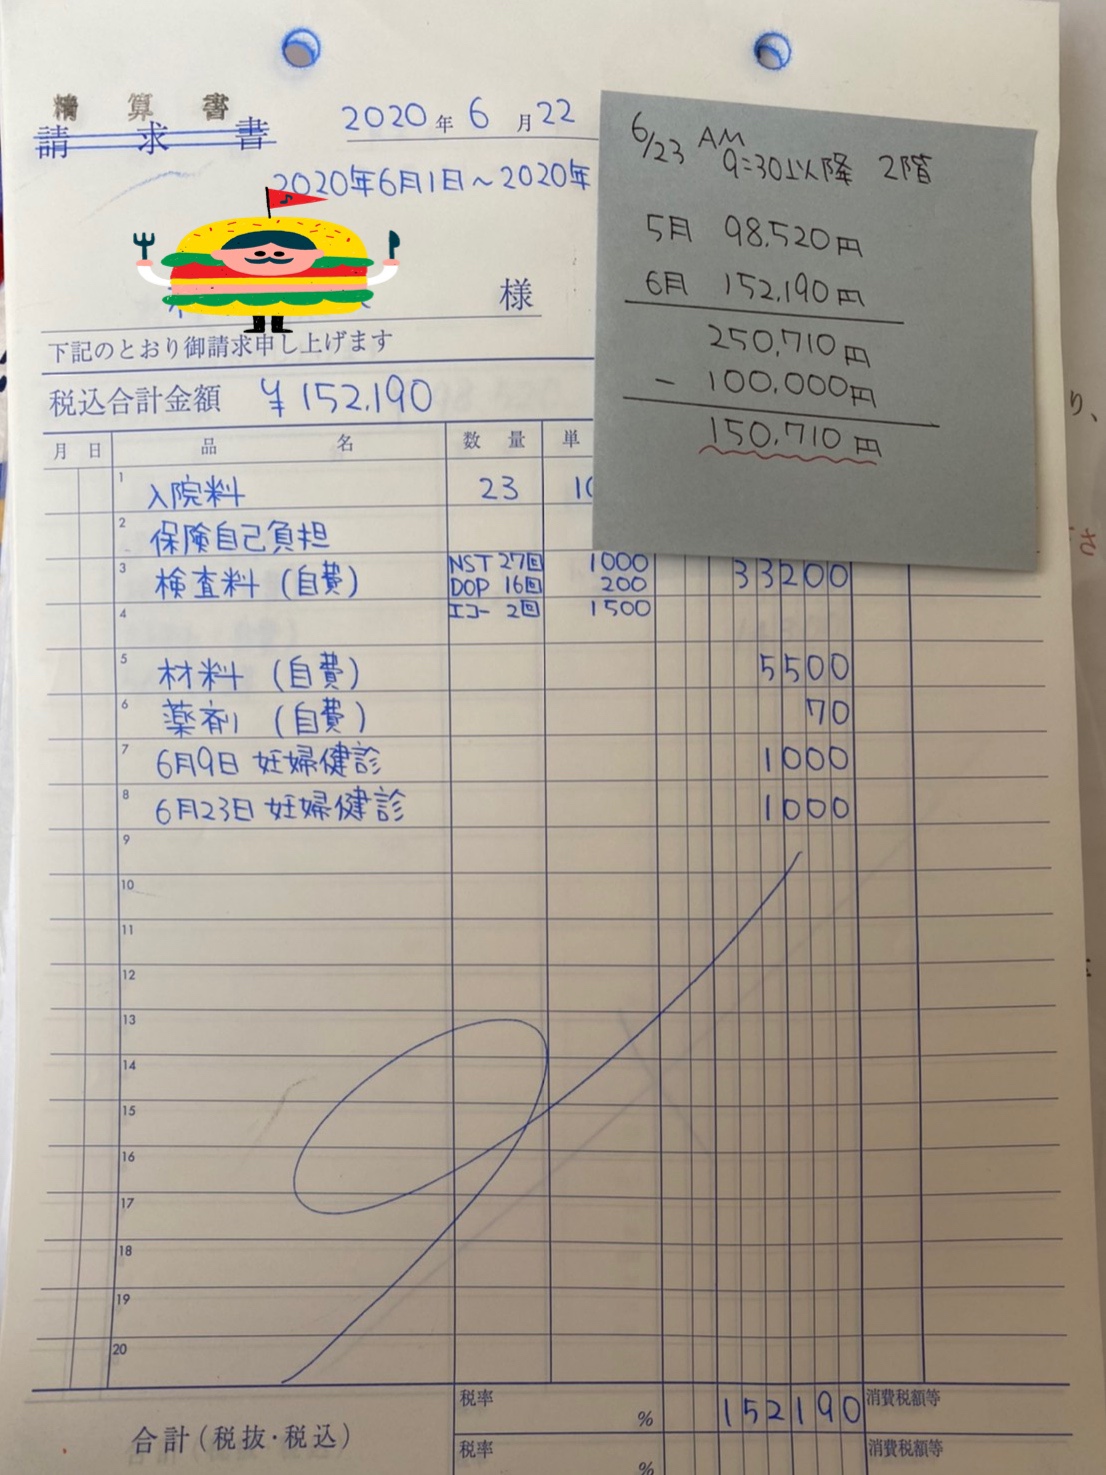 精算書
請求書
2020年6月22
2020年6月1日～2020年
様
下記のとおり御請求申し上げます
税込合計金額 ¥152,190
6/23 AM 9:30以降 2階
5月 98,520円
6月 152,190円
250,710円
- 100,000円
150,710円
月 日 品名 数量 単
1 入院料 23
2 保険自己負担
3 検査料(自費) NST 27回 1000 33200
DOP 16回 200
4 エコー 2回 1500
5 材料(自費) 5500
6 薬剤(自費) 70
7 6月9日 妊婦健診 1000
8 6月23日 妊婦健診 1000
9
10
11
12
13
14
15
16
17
18
19
20
合計(税抜・税込) 税率 % 152190 消費税額等
税率 % 消費税額等